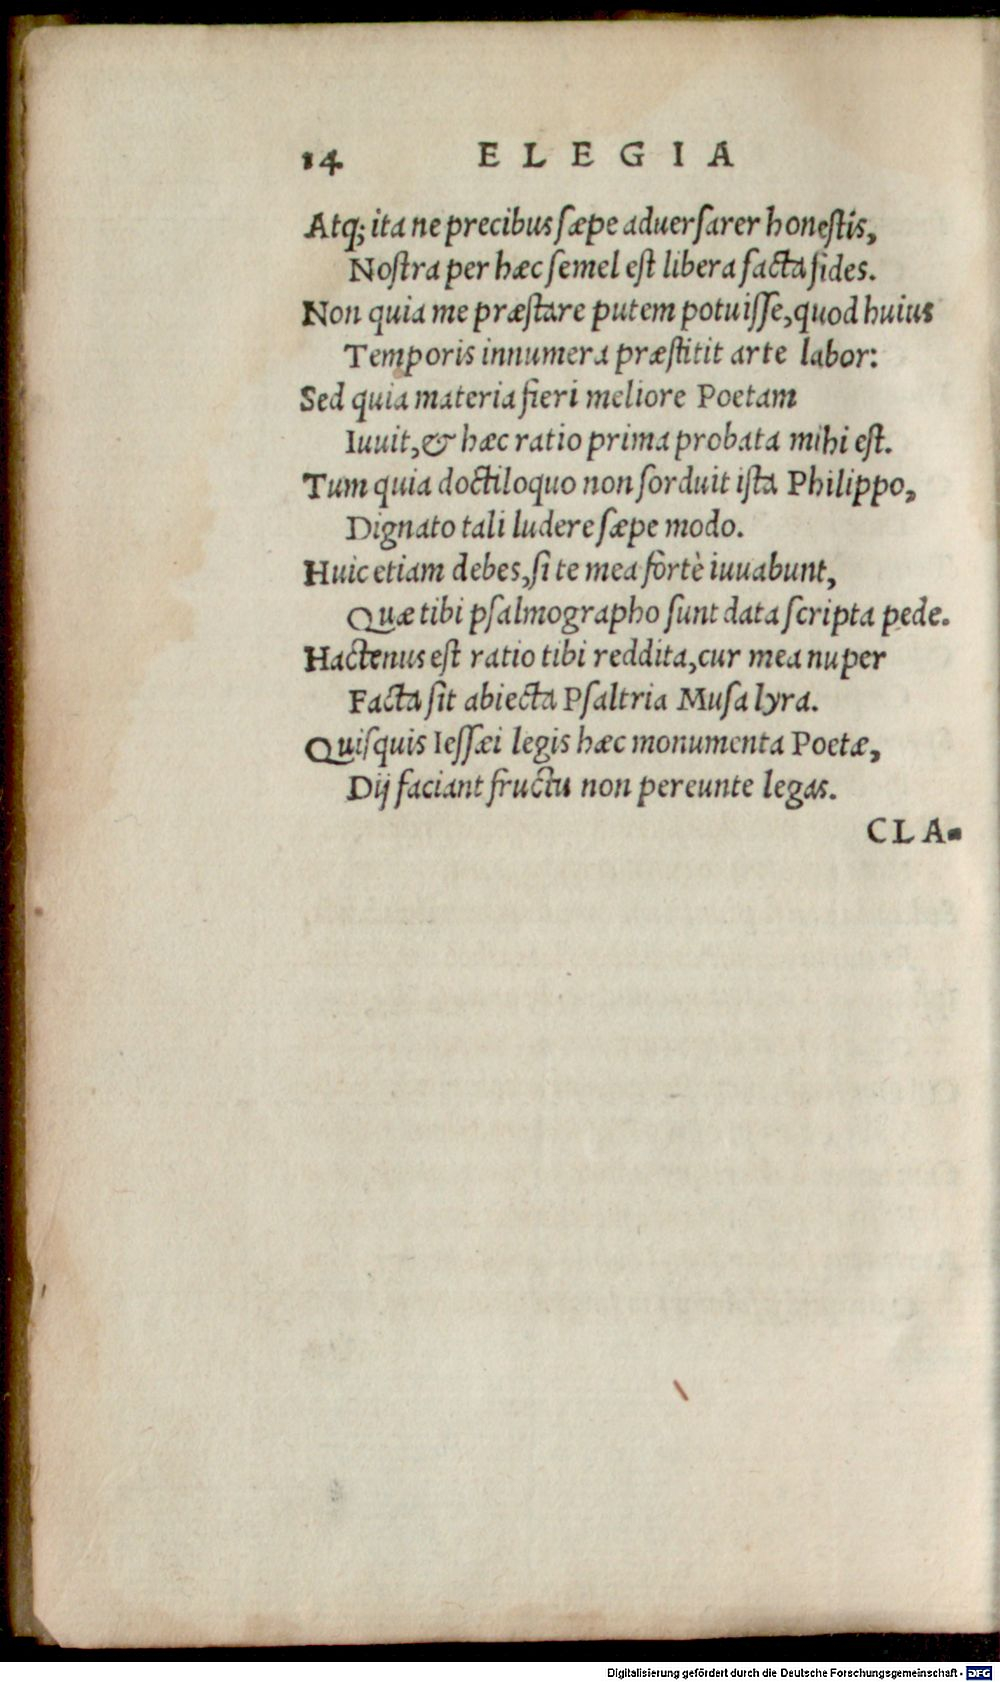 14 ELEGIA
Atq; ita ne precibus sæpe aduersarer honestis,
Nostra per hæc semel est libera facta fides.
Non quia me præstare putem potuisse, quod huius
Temporis innumera præstitit arte labor:
Sed quia materia fieri meliore Poetam
Iuuit, & hæc ratio prima probata mihi est.
Tum quia doctiloquo non sorduit ista Philippo,
Dignato tali ludere sæpe modo.
Huic etiam debes, si te mea fortè iuuabunt,
Quæ tibi psalmographo sunt data scripta pede.
Hactenus est ratio tibi reddita, cur mea nuper
Facta sit abiecta Psaltria Musa lyra.
Quisquis Iessæi legis hæc monumenta Poetæ,
Dij faciant fructu non pereunte legas.
CLA-
Digitalisierung gefördert durch die Deutsche Forschungsgemeinschaft - DFG